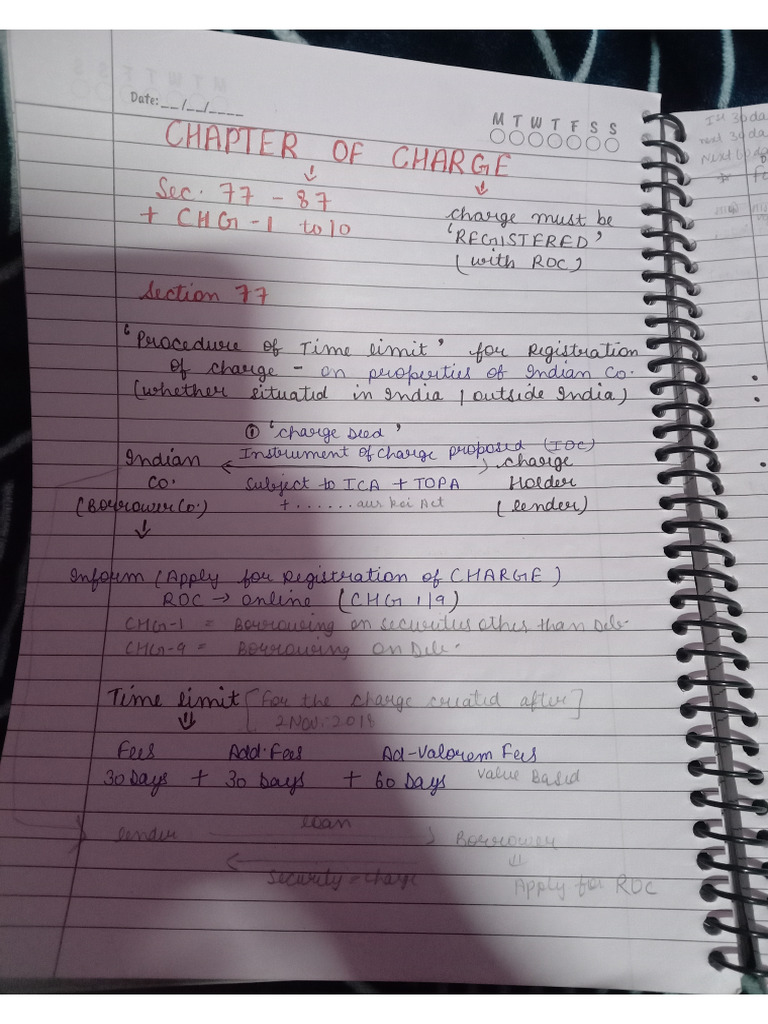 Date:__/__/____
M T W T F S S
CHAPTER OF CHARGE
Sec. 77 - 87
+ CHG-1 to 10
charge must be
'REGISTERED'
(with ROC)
Section 77
'Procedure of Time limit' for Registration
of charge - on properties of Indian Co.
(whether situated in India / outside India)
① 'charge Deed'
Instrument of Charge proposed (IOC)
Indian
Co.
(Borrower Co.)
Subject to ICA + TOPA
+ ...... aur koi Act
charge
Holder
(lender)
Inform (Apply for Registration of CHARGE)
ROC → online (CHG 1/9)
CHG-1 = Borrowing on securities other than Deb.
CHG-9 = Borrowing on Deb.
Time limit [For the charge created after]
2 Nov. 2018
Fees Add. Fees Ad-Valorem Fees
30 Days + 30 Days + 60 Days value Based
lender loan Borrower
security = charge
Apply for ROC
1st 30 da
next 30 da
Next 60 da